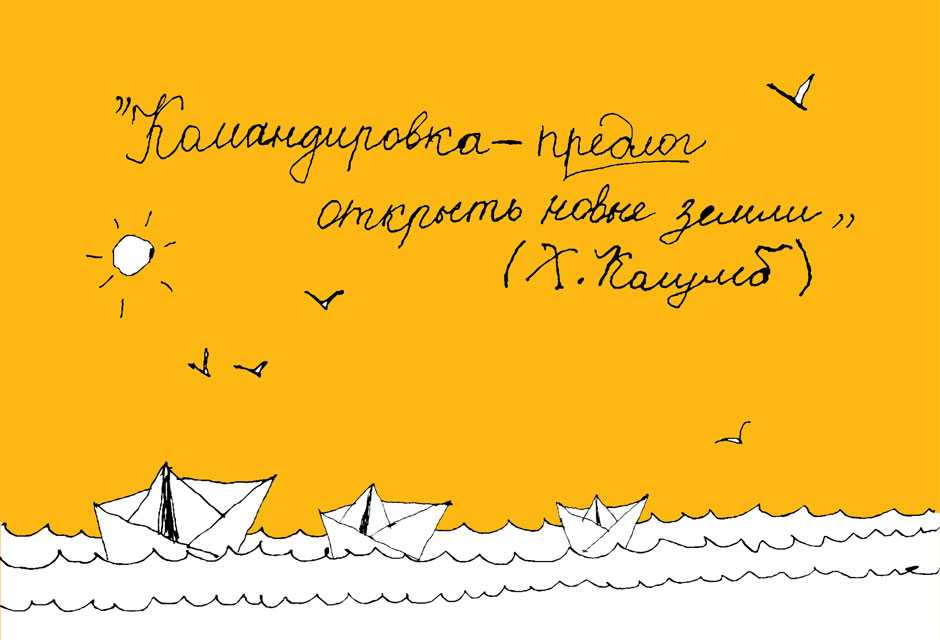 "Командировка – предлог
открыть новые земли"
(Х. Колумб)